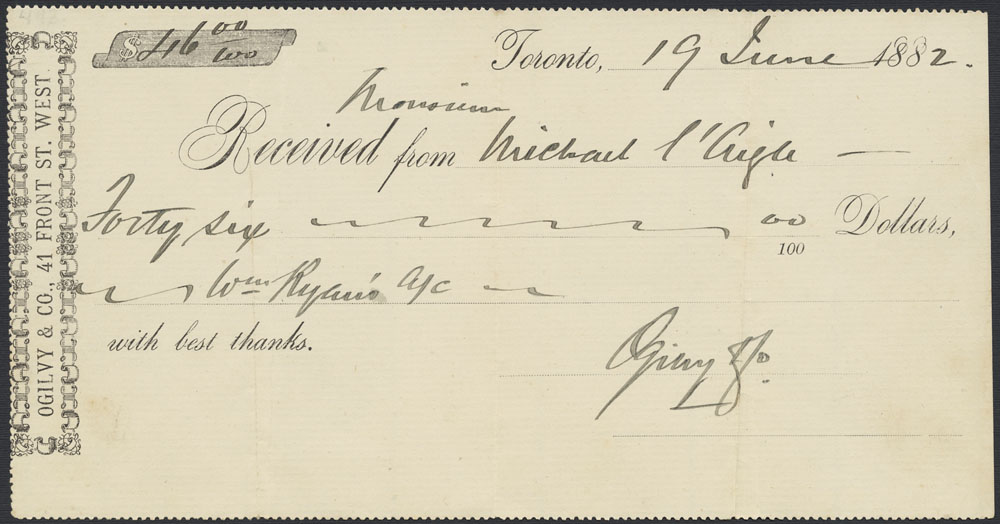 OGILVY & CO., 41 FRONT ST. WEST
$46 00/100
Toronto, 19 June 1882.
Monsieur
Received from Michael l'Aigle
Forty six 00/100 Dollars,
Wm Ryan's a/c
with best thanks.
Ogilvy & Co.